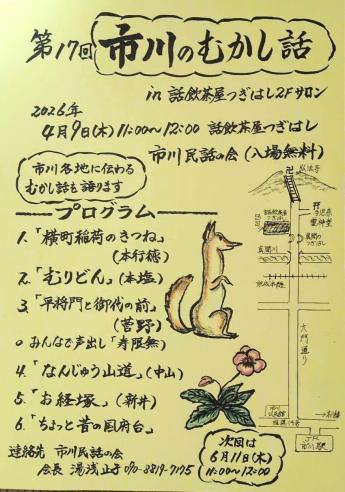 第17回
市川のむかし話
in 話飲茶屋つぎはし2Fサロン
2026年
4月9日(木)11:00~12:00 話飲茶屋つぎはし
市川民話の会(入場無料)
市川各地に伝わる
むかし話を語ります
プログラム
1.「横町稲荷のきつね」
(本行徳)
2.「むりどん」(本塩)
3.「平将門と御代の前」
(菅野)
○みんなで声出し「寿限無」
4.「なんじゅう山道」(中山)
5.「お経塚」(新井)
6.「ちょっと昔の国府台」
連絡先 市川民話の会
会長 湯浅止子 070-8819-7175
次回は
6月11日(木)
11:00~12:00
弘法寺
手児奈
霊神堂
話飲茶屋
つぎはし
真間川
京成本線
大門通り
国道14号
JR
市川駅